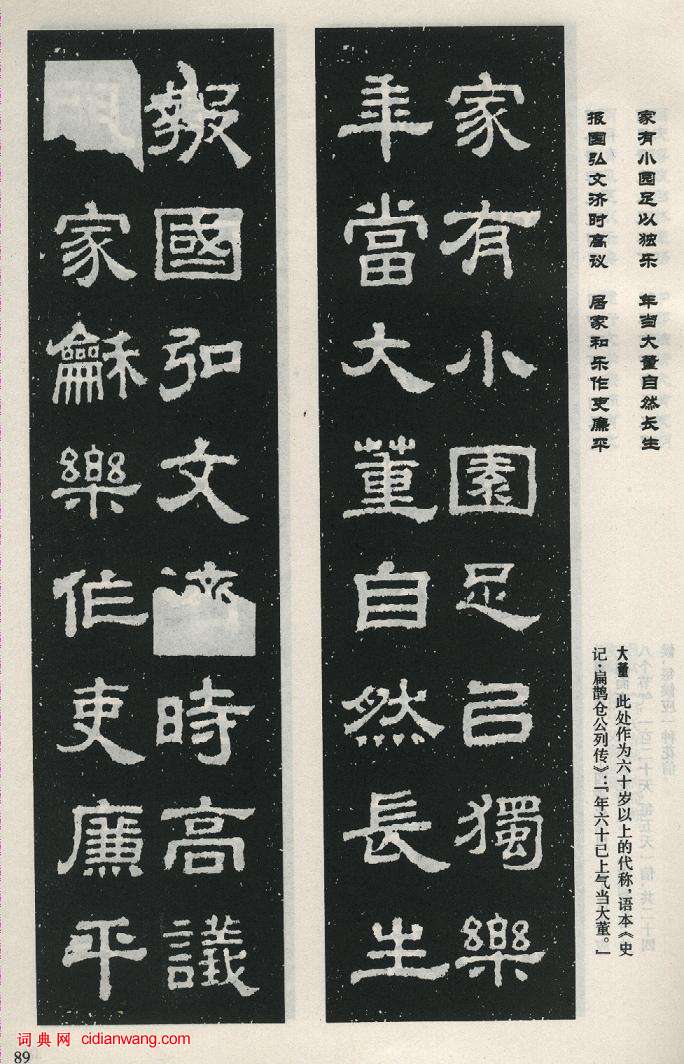 家有小园足以独乐　年当大董自然长生
报国弘文济时高议　居家和乐作吏廉平
大董　此处作为六十岁以上的代称，语本《史
记·扁鹊仓公列传》：「年六十已上气当大董。」
家有小園足㠯獨樂
年當大董自然長生
報國弘文濟時高議
家龢樂作吏廉平
词典网 cidianwang.com
89